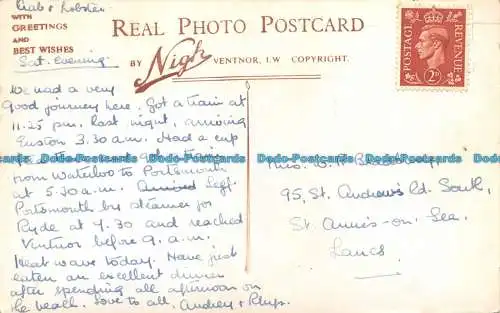 Crab & Lobster
WITH
GREETINGS
AND
BEST WISHES
Sat. Evening.
REAL PHOTO POSTCARD
BY Nigh VENTNOR, I.W COPYRIGHT.
POSTAGE
REVENUE
2D
We had a very
good journey here. Got a train at
11.25 pm. last night, arriving
Euston 3.30 a.m. Had a cup
from Waterloo to Portsmouth
at 5.30 a.m. Arrived Left
Portsmouth by steamer for
Ryde at 7.30 and reached
Ventnor before 9. a.m.
Heat wave today. Have just
eaten an excellent dinner
after spending all afternoon on
the beach. Love to all. Audrey & Phyp.
95, St. Andrews Rd. South,
St. Annes-on-Sea,
Lancs.
Dodo-Postcards Dodo-Postcards Dodo-Postcards Dodo-Postcards Dodo-Postcards